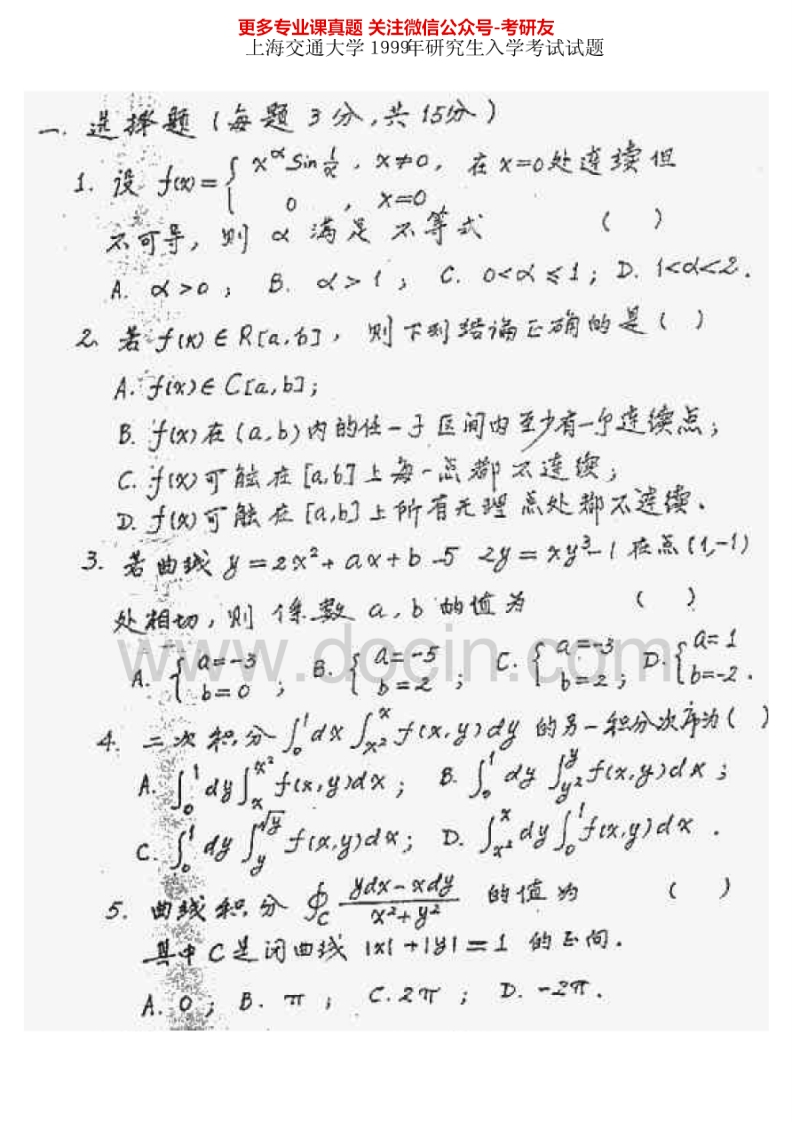 更多专业课真题 关注微信公众号-考研友
上海交通大学 1999年研究生入学考试试题
一. 选择题 (每题 3 分,共 15分)
1. 设 f(x) = { x^α Sin 1/x , x≠0, 在 x=0处连续但
0 , x=0
不可导, 则 α 满足 不等式 ( )
A. α>0 ; B. α>1 ; C. 0<α≤1 ; D. 1<α<2 .
2. 若 f(x) ∈ R[a,b] , 则下列结论正确的是 ( )
A. f(x) ∈ C[a,b] ;
B. f(x) 在 (a,b) 内的任一子区间内至少有一个连续点 ;
C. f(x) 可能在 [a,b] 上每一点都不连续 ;
D. f(x) 可能在 [a,b] 上所有无理点处都不连续 .
3. 若曲线 y = 2x²+ ax + b 与 2y = xy³-1 在点 (1,-1)
处相切, 则 係数 a, b 的值为 ( )
A. { a=-3 b=0 ; B. { a=-5 b=2 ; C. { a=-3 b=2 ; D. { a=1 b=-2 .
www.docin.com
4. 二次积分 ∫₀¹ dx ∫_{x²}^{x} f(x,y) dy 的另一积分次序为 ( )
A. ∫₀¹ dy ∫_{x}^{x²} f(x,y) dx ; B. ∫₀¹ dy ∫_{y²}^{y} f(x,y) dx ;
C. ∫₀¹ dy ∫_{y}^{√y} f(x,y) dx ; D. ∫_{x²}^{x} dy ∫₀¹ f(x,y) dx .
5. 曲线积分 ∮_C (ydx - xdy)/(x²+y²) 的值为 ( )
其中 C 是闭曲线 |x|+|y|=1 的正向 .
A. 0 ; B. π ; C. 2π ; D. -2π .